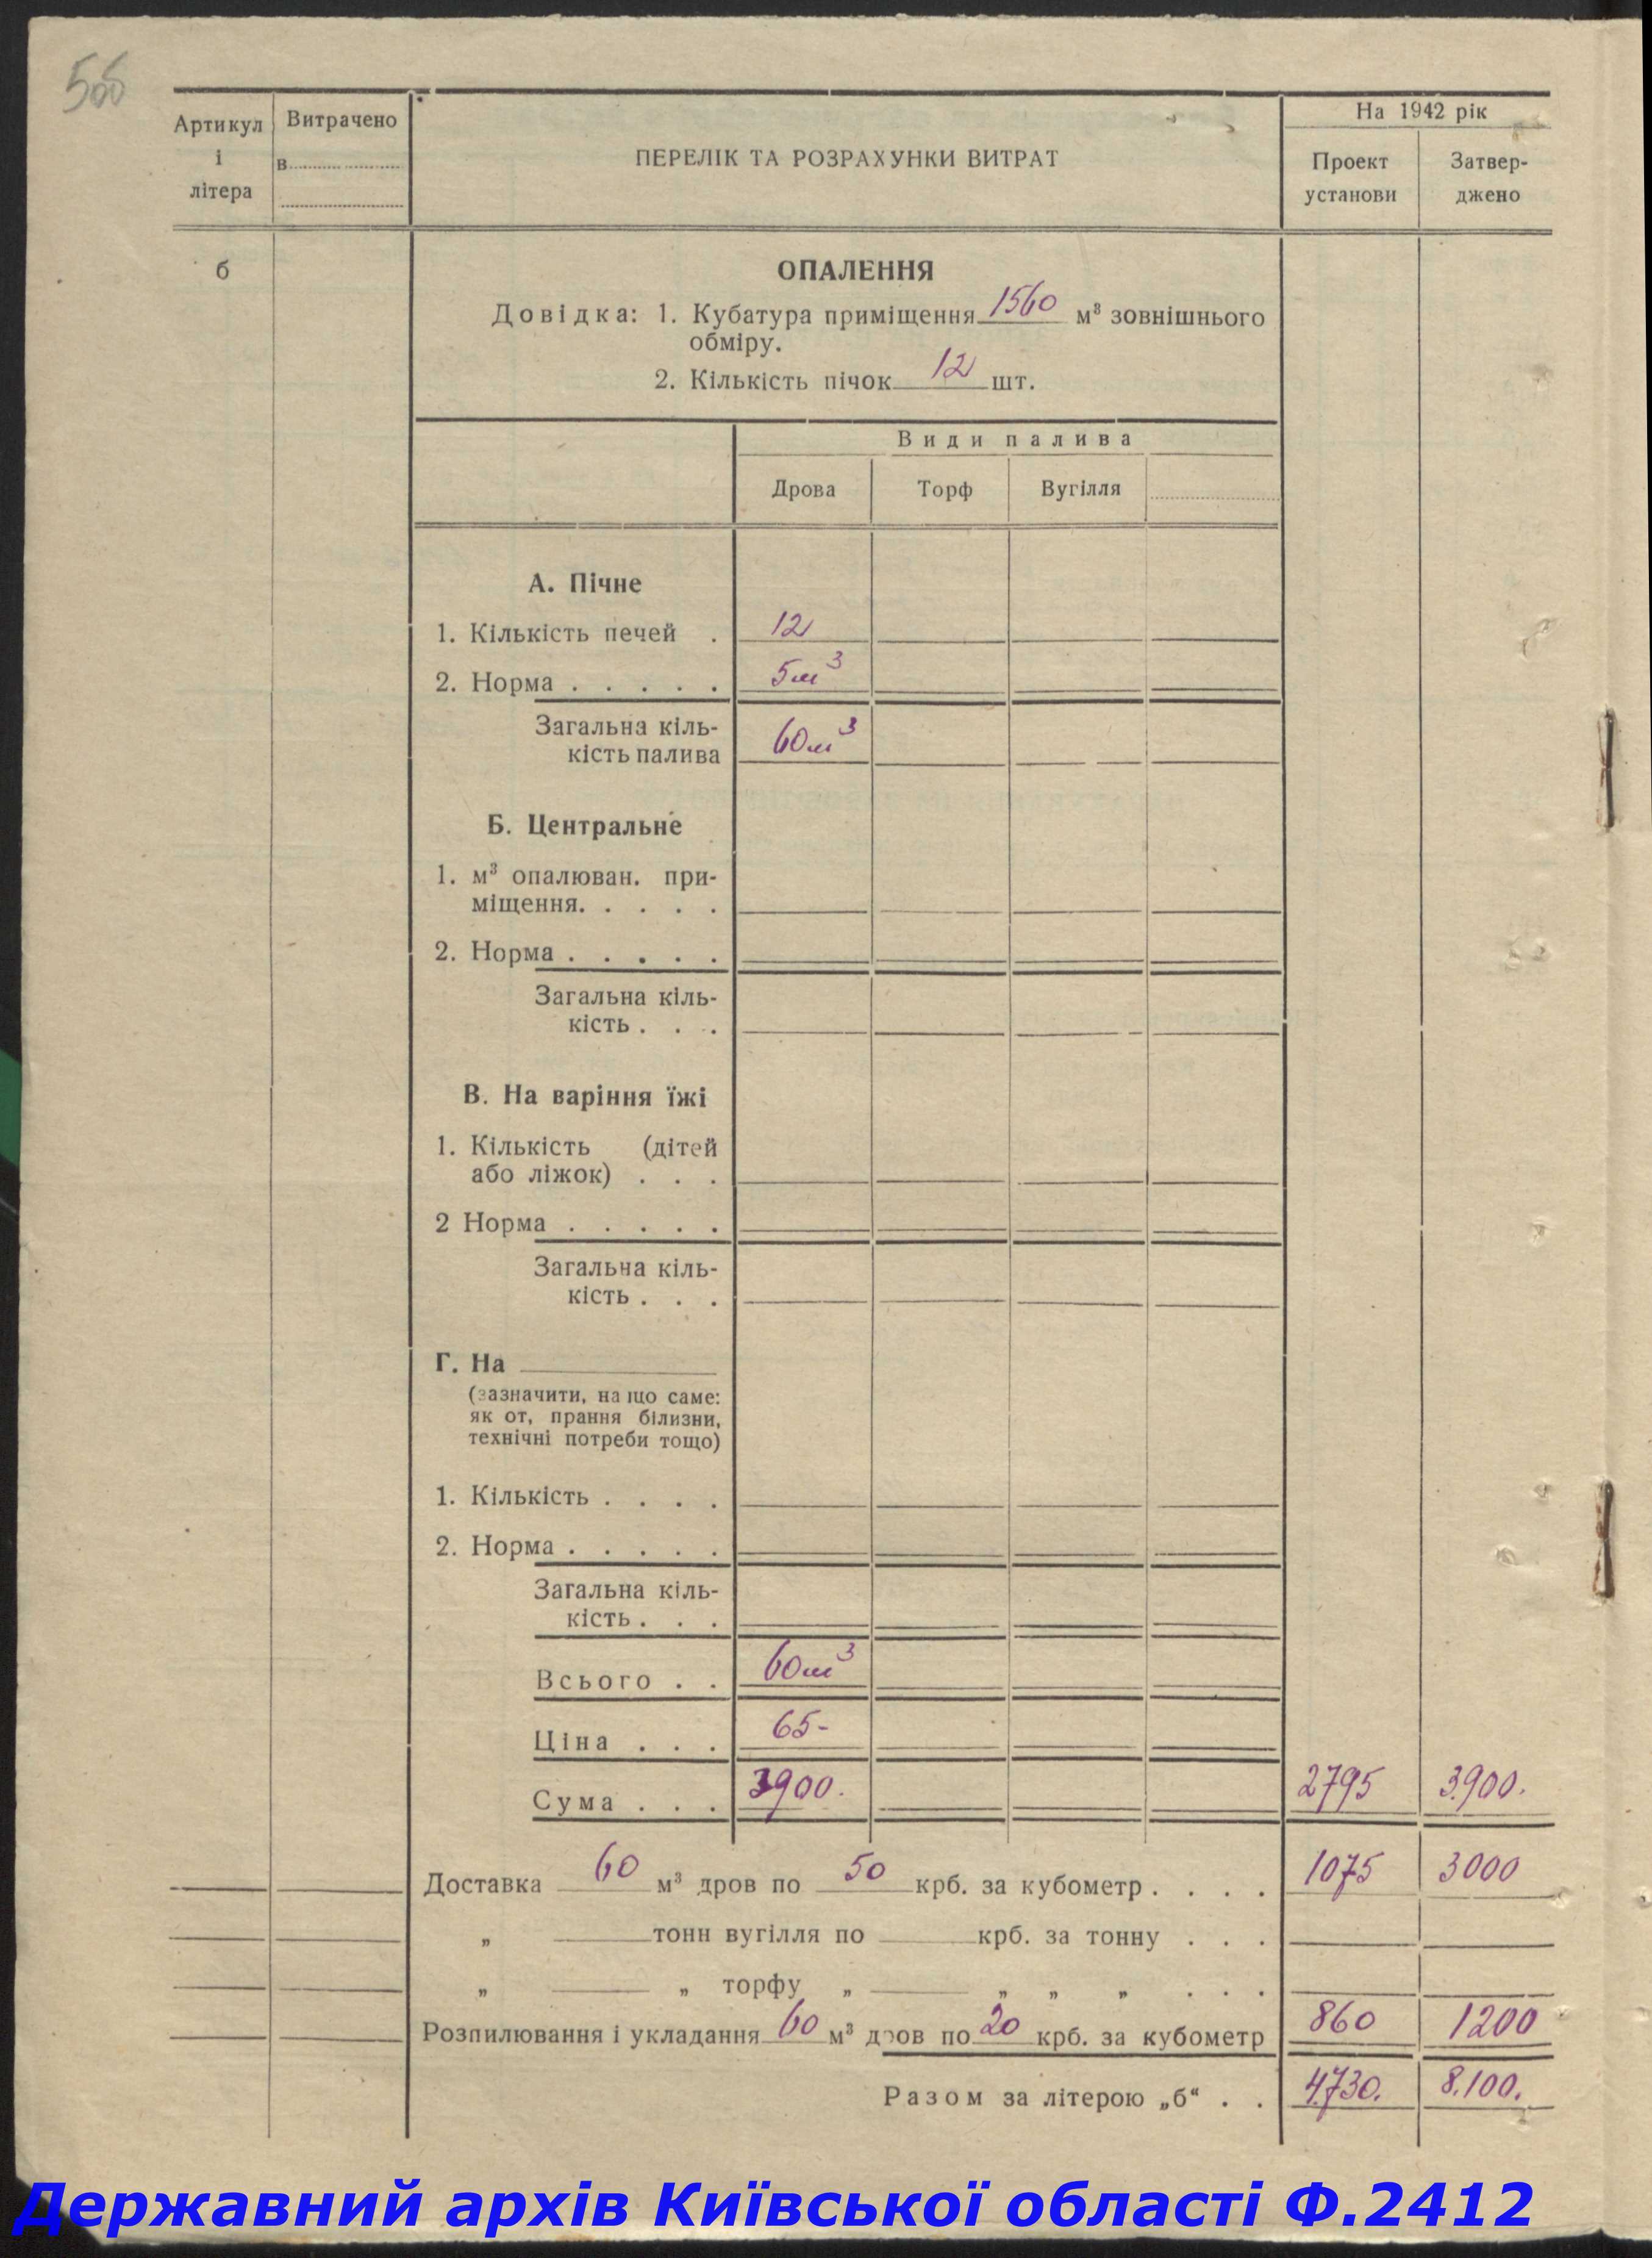 5об
Артикул і літера
Витрачено в
ПЕРЕЛІК ТА РОЗРАХУНКИ ВИТРАТ
На 1942 рік
Проект установи
Затвер-джено
б
ОПАЛЕННЯ
Довідка: 1. Кубатура приміщення 1560 м³ зовнішнього
обміру.
2. Кількість пічок 12 шт.
Види палива
Дрова Торф Вугілля
А. Пічне
1. Кількість печей . 12
2. Норма . . . . . 5м³
Загальна кіль-
кість палива 60м³
Б. Центральне
1. м³ опалюван. при-
міщення. . . . .
2. Норма . . . . .
Загальна кіль-
кість . . .
В. На варіння їжі
1. Кількість (дітей
або ліжок) . . .
2 Норма . . . . .
Загальна кіль-
кість . . .
Г. На
(зазначити, на що саме:
як от, прання білизни,
технічні потреби тощо)
1. Кількість . . . .
2. Норма . . . . .
Загальна кіль-
кість . . .
Всього . . 60м³
Ціна . . . 65-
Сума . . . 3900. 2795 3.900.
Доставка 60 м³ дров по 50 крб. за кубометр . . . . 1075 3000
„ тонн вугілля по крб. за тонну . . .
„ „ торфу „ „ „ „ . . .
Розпилювання і укладання 60 м³ дров по 20 крб. за кубометр 860 1200
Разом за літерою „б“ . . 4.730. 8.100.
Державний архів Київської області Ф.2412